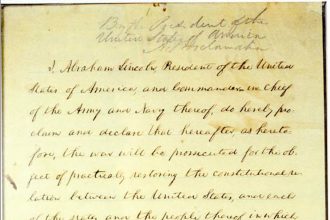 By the President of the
United States of America
A Proclamation
I, Abraham Lincoln, President of the United
States of America, and Commander-in-Chief
of the Army and Navy thereof, do hereby pro-
claim and declare that hereafter, as hereto-
fore, the war will be prosecuted for the ob-
ject of practically restoring the constitutional re-
lation between the United States, and each
of the states, and the people thereof, in which